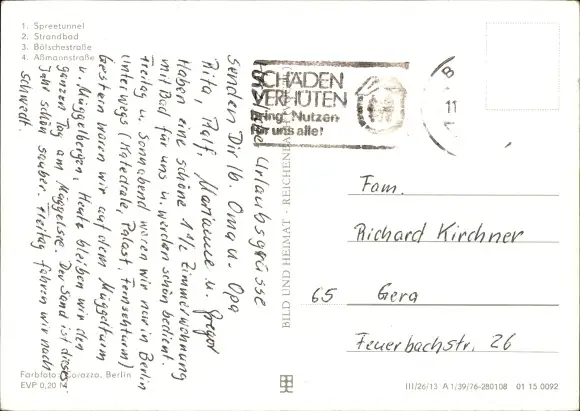 1. Spreetunnel
2. Strandbad
3. Bölschestraße
4. Aßmannstraße
Urlaubsgrüsse
senden Dir lb. Oma u. Opa
Rita, Ralf, Marianne u. Gregor
Haben eine schöne 1 1/2 Zimmerwohnung
mit Bad für uns u. werden schön bedient.
Freitag u. Sonnabend waren wir nur in Berlin
unterwegs (Katedrale, Palast, Fernsehturm)
Gestern waren wir auf dem Müggelturm
u. Müggelbergen, Heute bleiben wir den
ganzen Tag am Müggelsee. Der Sand ist dieses
Jahr schön sauber. Freitag fahren wir nach
Schwedt.
Farbfoto: Corazza, Berlin
EVP 0,20 M
BILD UND HEIMAT · REICHENBACH
SCHÄDEN
VERHÜTEN
bringt Nutzen
für uns alle!
11
Fam.
Richard Kirchner
65 Gera
Feuerbachstr. 26
III/26/13 A 1/39/76-280108 01 15 0092